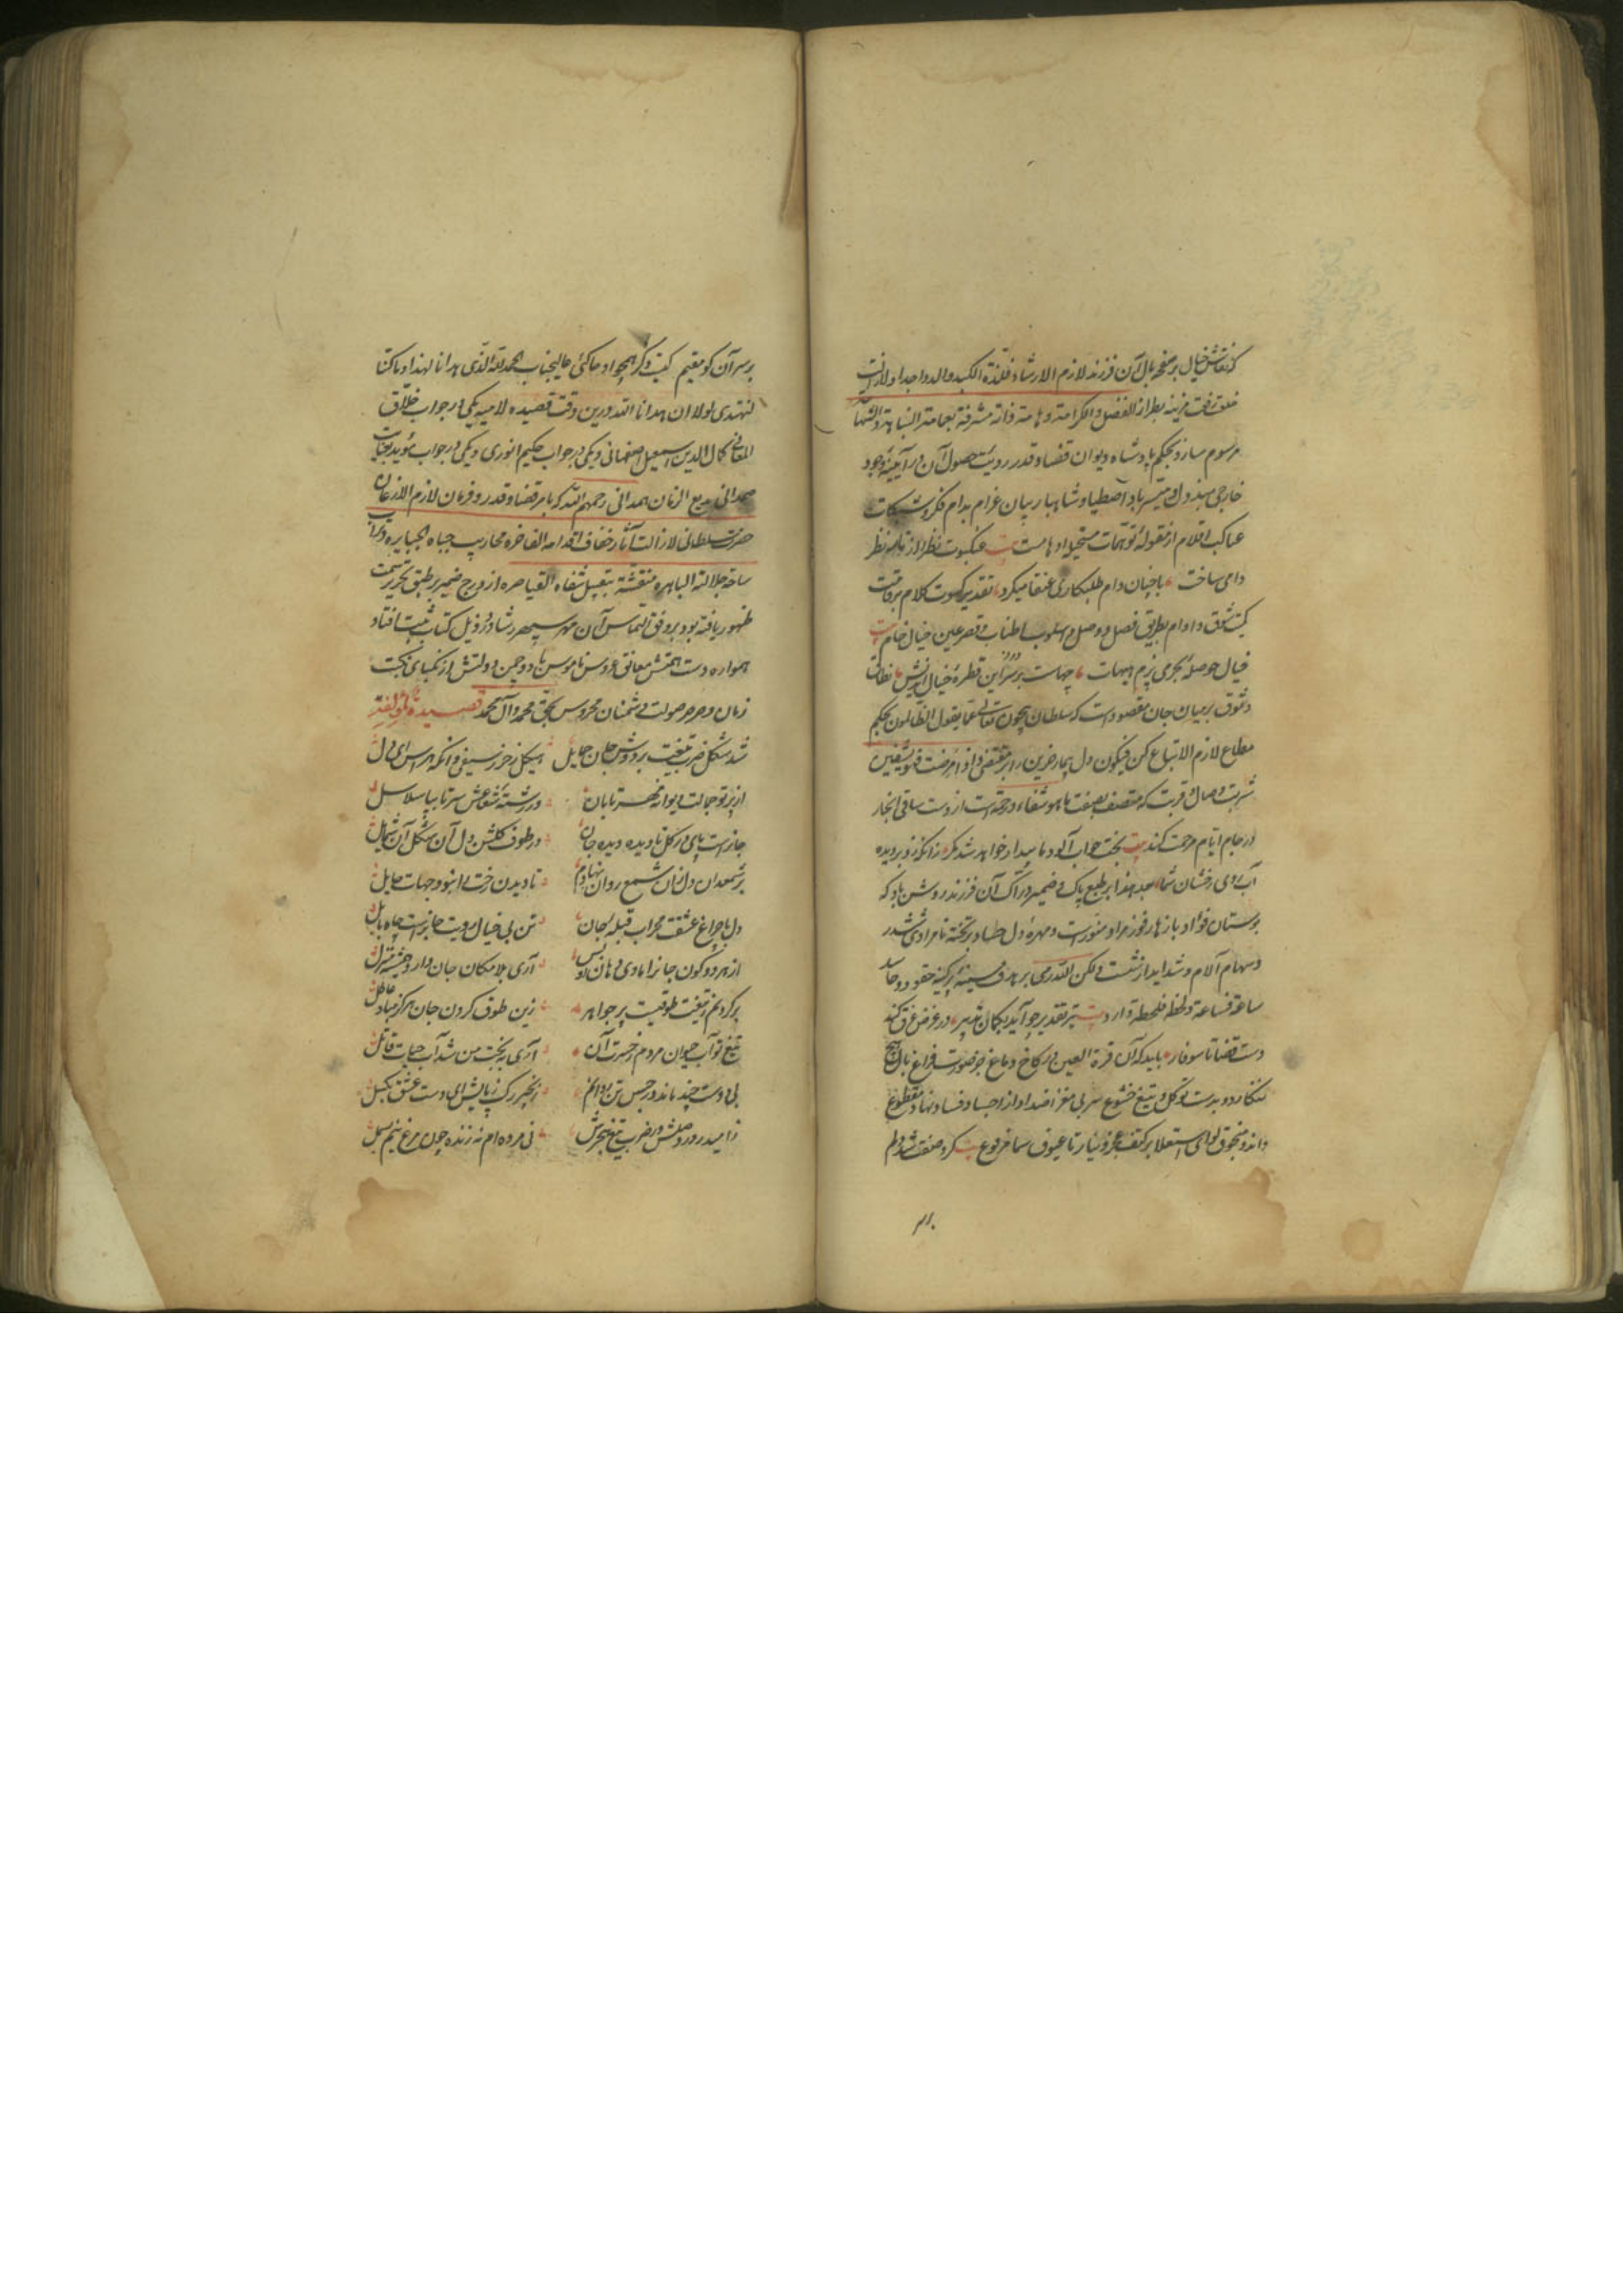 که نقاش خیال بر صفحه بال آن فرزند لازم الارشاد فلذة الکبد والد و اجداد لازالت
خلعة رفعت مزینة بطراز الفضل و الکرامة و هامة ذاته مشرفة بعمامة النباهة و الشهامة
مرسوم سازد بحکم پادشاه دیوان قضا و قدر رویت حصول آن در آیینه وجود
خارجی مبذول و میسر باد اصطیاد شاهباز بیان غرام بدام فکر و شبکات
عناکب اقلام از مقوله توهمات مستحیل اوهامست بیت عنکبوت نظر از تار نظر
دامی ساخت با چنان دام طلبکاری عنقا میکرد تقدیر کسوت کلام بر قامت
کیت شوق و اوام بطریق فصل و وصل و اسلوب اطناب و قصر عین خیال خام بیت
خیال حوصله بحری پزم هیهات چهاست بر سر این قطره خیال اندیش نطاق
وثوق بر میان جان مقصود است که سلطان بیچون تعالی عما یقول الظالمون بحکم
مطاع لازم الاتباع کن فیکون دل بیمار حزین را بر مقتضی و اذا مرضت فهو یشفین
شربت وصال و قربت که متصف بصفت ما هو شفاء و رحمة است از دست ساقی انجاز
در جام ایام مرحمت کند بیت بخت خواب آلود ما بیدار خواهد شد مگر زانکه زد بر دیده
آب روی رخشان شما بعد هذا بر طبع پاک و ضمیر دراک آن فرزند روشن باد که
بوستان فؤاد بازهار فوز مراد منورست و مهره دل حساد بر تخته نامرادی ششدر
و سهام آلام و شداید از شست و لکن الله رمی بر هدف سینه پر کینه حقود و حاسد
ساعة فساعة و لحظة فلحظة وارد بیت تیر تقدیر چو آید بکمان تدبیر در غرض غرق کند
دست قضا تا سوفار باید که آن قرة العین در کاخ دماغ جز صورت فراغ بال هیچ
ننگارد و بدست توکل و تیغ خشوع سر بی مغز اضداد از اجساد فساد نهاد مقطوع
داند و منجوق لوای استعلا بر کتف عجز و نیاز تا عیوق سما مرفوع بیت کرد صفت شاد دلم
بر سر
بر سر آن کو مقیم کیت دگر همچو او حاکئی عالیجناب الحمد لله الذی هدانا لهذا و ما کنا
لنهتدی لولا ان هدانا الله درین وقت قصیده لامیه یکی در جواب خلاق
المعانی کمال الدین اسمعیل اصفهانی و یکی در جواب حکیم انوری و یکی در جواب مؤید بتأیید
صمدانی بدیع الزمان همدانی رحمهم الله که بامر قضا و قدر و فرمان لازم الاذعان
حضرت سلطانی لازالت آثار خفاف اقدامه الفاخرة محاریب جباه الجبابرة و تراب
ساحة جلالته الباهرة منقشة بتقبیل شفاه القیاصرة از درج ضمیر بر طبق تحریر سمت
ظهور یافته بود بر وفق التماس آن مهر سپهر رشاد در ذیل کتاب مثبت افتاد
همواره دست همتش معانق عروس ناموس باد و چمن دولتش از نکبای نکبت
زمان و صرصر صولت دشمنان محروس بحق محمد و آل محمد قصیده لمؤلفه
شد شکل ضرب تیغت بر دوش جان حمایل هیکل ز حرز سیفی وانگه هراس ای دل
از پرتو جمالت دیوانه مهر تابان در رشته شعاعش سر تا بپا سلاسل
جانراست پای در گل تا دیده دیده جان در طوف گلشن دل آن شکل آن شمایل
بر شمعدان دل زان شمع روان نهادم تا دیدن رخت را نبود جهات حایل
دل با چراغ عشقت محراب قبله جان تن بی خیال رویت جانراست چاه بابل
از هر دو کون جانرا مأوی دهان تو بس آری بلامکان جان دارد همیشه منزل
بر گردنم ز تیغت طوقیست پر جواهر زین طوق گردن جان هرگز مباد عاطل
تیغ تو آب حیوان مردم ز حسرت آن آری ببخت من شد آب حیات قاتل
بی دوست چند ماند در حبس تن روانم زنجیر رگ ز پایش ای دست عشق بگسل
ز امید درد وصلش در ضرب تیغ هجرش نی مرده ام نه زنده چون مرغ نیم بسمل